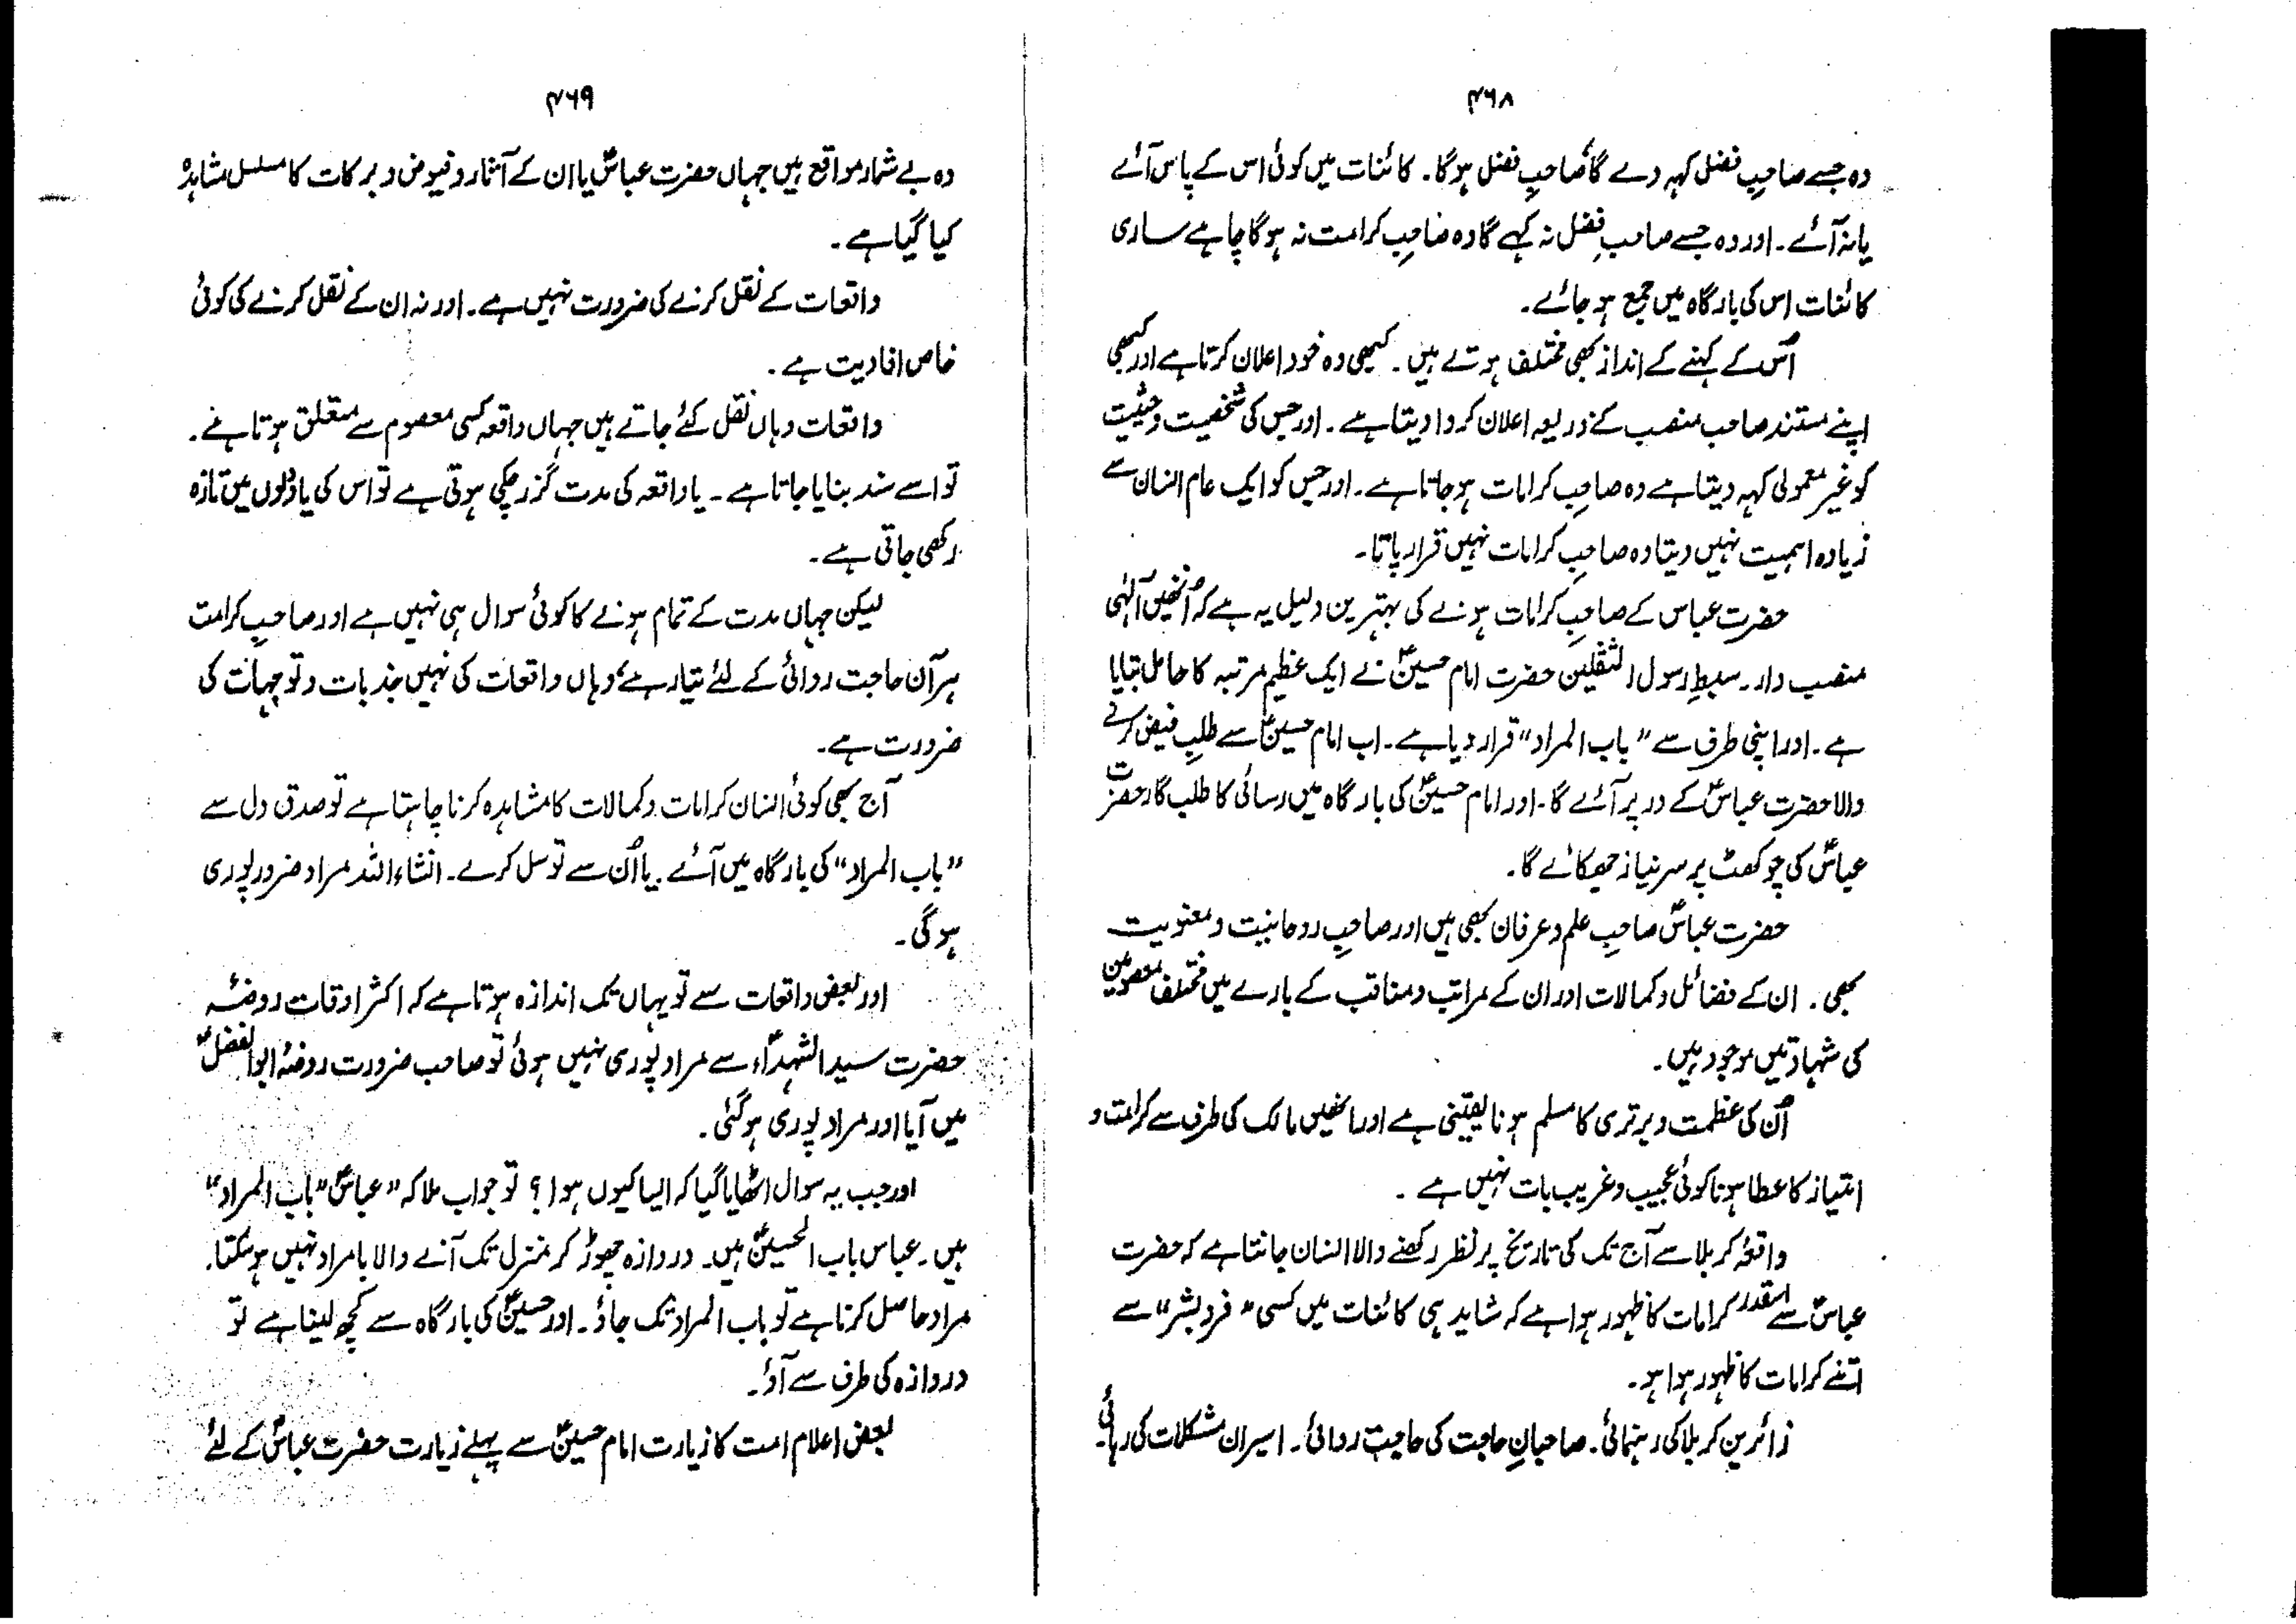 ۴۶۸
وہ جسے صاحبِ فضل کہہ دے گا صاحبِ فضل ہوگا۔ کائنات میں کوئی اس کے پاس آئے
یا نہ آئے۔ اور وہ جسے صاحبِ فضل نہ کہے گا وہ صاحبِ کرامت نہ ہوگا چاہے ساری
کائنات اس کی بارگاہ میں جمع ہو جائے۔
اُس کے کہنے کے انداز بھی مختلف ہوتے ہیں۔ کبھی وہ خود اعلان کرتا ہے اور کبھی
اپنے مستند صاحب منصب کے ذریعہ اعلان کروا دیتا ہے۔ اور جس کی شخصیت و حیثیت
کو غیر معمولی کہہ دیتا ہے وہ صاحبِ کرامات ہو جاتا ہے۔ اور جس کو ایک عام انسان سے
زیادہ اہمیت نہیں دیتا وہ صاحبِ کرامات نہیں قرار پاتا۔
حضرت عباس کے صاحبِ کرامات ہونے کی بہترین دلیل یہ ہے کہ اُنھیں الٰہی
منصب دار۔ سبطِ رسول الثقلین حضرت امام حسینؑ نے ایک عظیم مرتبہ کا حامل بتایا
ہے۔ اور اپنی طرف سے "باب المراد" قرار دیا ہے۔ اب امام حسینؑ سے طلبِ فیض کرنے
والا حضرت عباسؑ کے در پر آئے گا۔ اور امام حسینؑ کی بارگاہ میں رسائی کا طلب گار حضرت
عباسؑ کی چوکھٹ پر سر نیاز جھکائے گا۔
حضرت عباسؑ صاحبِ علم و عرفان بھی ہیں اور صاحبِ روحانیت و معنویت
بھی۔ ان کے فضائل و کمالات اور ان کے مراتب و مناقب کے بارے میں مختلف معصومین
کی شہادتیں موجود ہیں۔
اُن کی عظمت و برتری کا مسلم ہونا یقینی ہے اور انھیں مالک کی طرف سے کرامت و
امتیاز کا عطا ہونا کوئی عجیب و غریب بات نہیں ہے۔
واقعۂ کربلا سے آج تک کی تاریخ پر نظر رکھنے والا انسان جانتا ہے کہ حضرت
عباسؑ سے اسقدر کرامات کا ظہور ہوا ہے کہ شاید ہی کائنات میں کسی "فردِ بشر" سے
اتنے کرامات کا ظہور ہوا ہو۔
زائرین کربلا کی رہنمائی۔ صاحبانِ حاجت کی حاجت روائی۔ اسیران مشکلات کی رہائی۔
۴۶۹
وہ بے شمار مواقع ہیں جہاں حضرت عباسؑ یا ان کے آثار و فیوض و برکات کا مسلسل مشاہدہ
کیا گیا ہے۔
واقعات کے نقل کرنے کی ضرورت نہیں ہے۔ اور نہ ان کے نقل کرنے کی کوئی
خاص افادیت ہے۔
واقعات وہاں نقل کئے جاتے ہیں جہاں واقعہ کسی معصوم سے متعلق ہوتا ہے۔
تو اسے سند بنایا جاتا ہے۔ یا واقعہ کی مدت گزر چکی ہوتی ہے تو اس کی یاد دلوں میں تازہ
رکھی جاتی ہے۔
لیکن جہاں مدت کے تمام ہونے کا کوئی سوال ہی نہیں ہے اور صاحبِ کرامت
ہر آن حاجت روائی کے لئے تیار ہے، وہاں واقعات کی نہیں جذبات و توجہات کی
ضرورت ہے۔
آج بھی کوئی انسان کرامات و کمالات کا مشاہدہ کرنا چاہتا ہے تو صدق دل سے
"باب المراد" کی بارگاہ میں آئے۔ یا اُن سے توسل کرے۔ انشاءاللہ مراد ضرور پوری
ہوگی۔
اور بعض واقعات سے تو یہاں تک اندازہ ہوتا ہے کہ اکثر اوقات روضۂ
حضرت سید الشہداؑء سے مراد پوری نہیں ہوئی تو صاحب ضرورت روضۂ ابوالفضلؑ
میں آیا اور مراد پوری ہو گئی۔
اور جب یہ سوال اٹھایا گیا کہ ایسا کیوں ہوا؟ تو جواب ملا کہ "عباسؑ" باب المراد"
ہیں۔ عباس باب الحسینؑ ہیں۔ دروازہ چھوڑ کر منزل تک آنے والا بامراد نہیں ہو سکتا۔
مراد حاصل کرنا ہے تو باب المراد تک جاؤ۔ اور حسینؑ کی بارگاہ سے کچھ لینا ہے تو
دروازہ کی طرف سے آؤ۔
بعض اعلام امت کا زیارت امام حسینؑ سے پہلے زیارت حضرت عباسؑ کے لئے